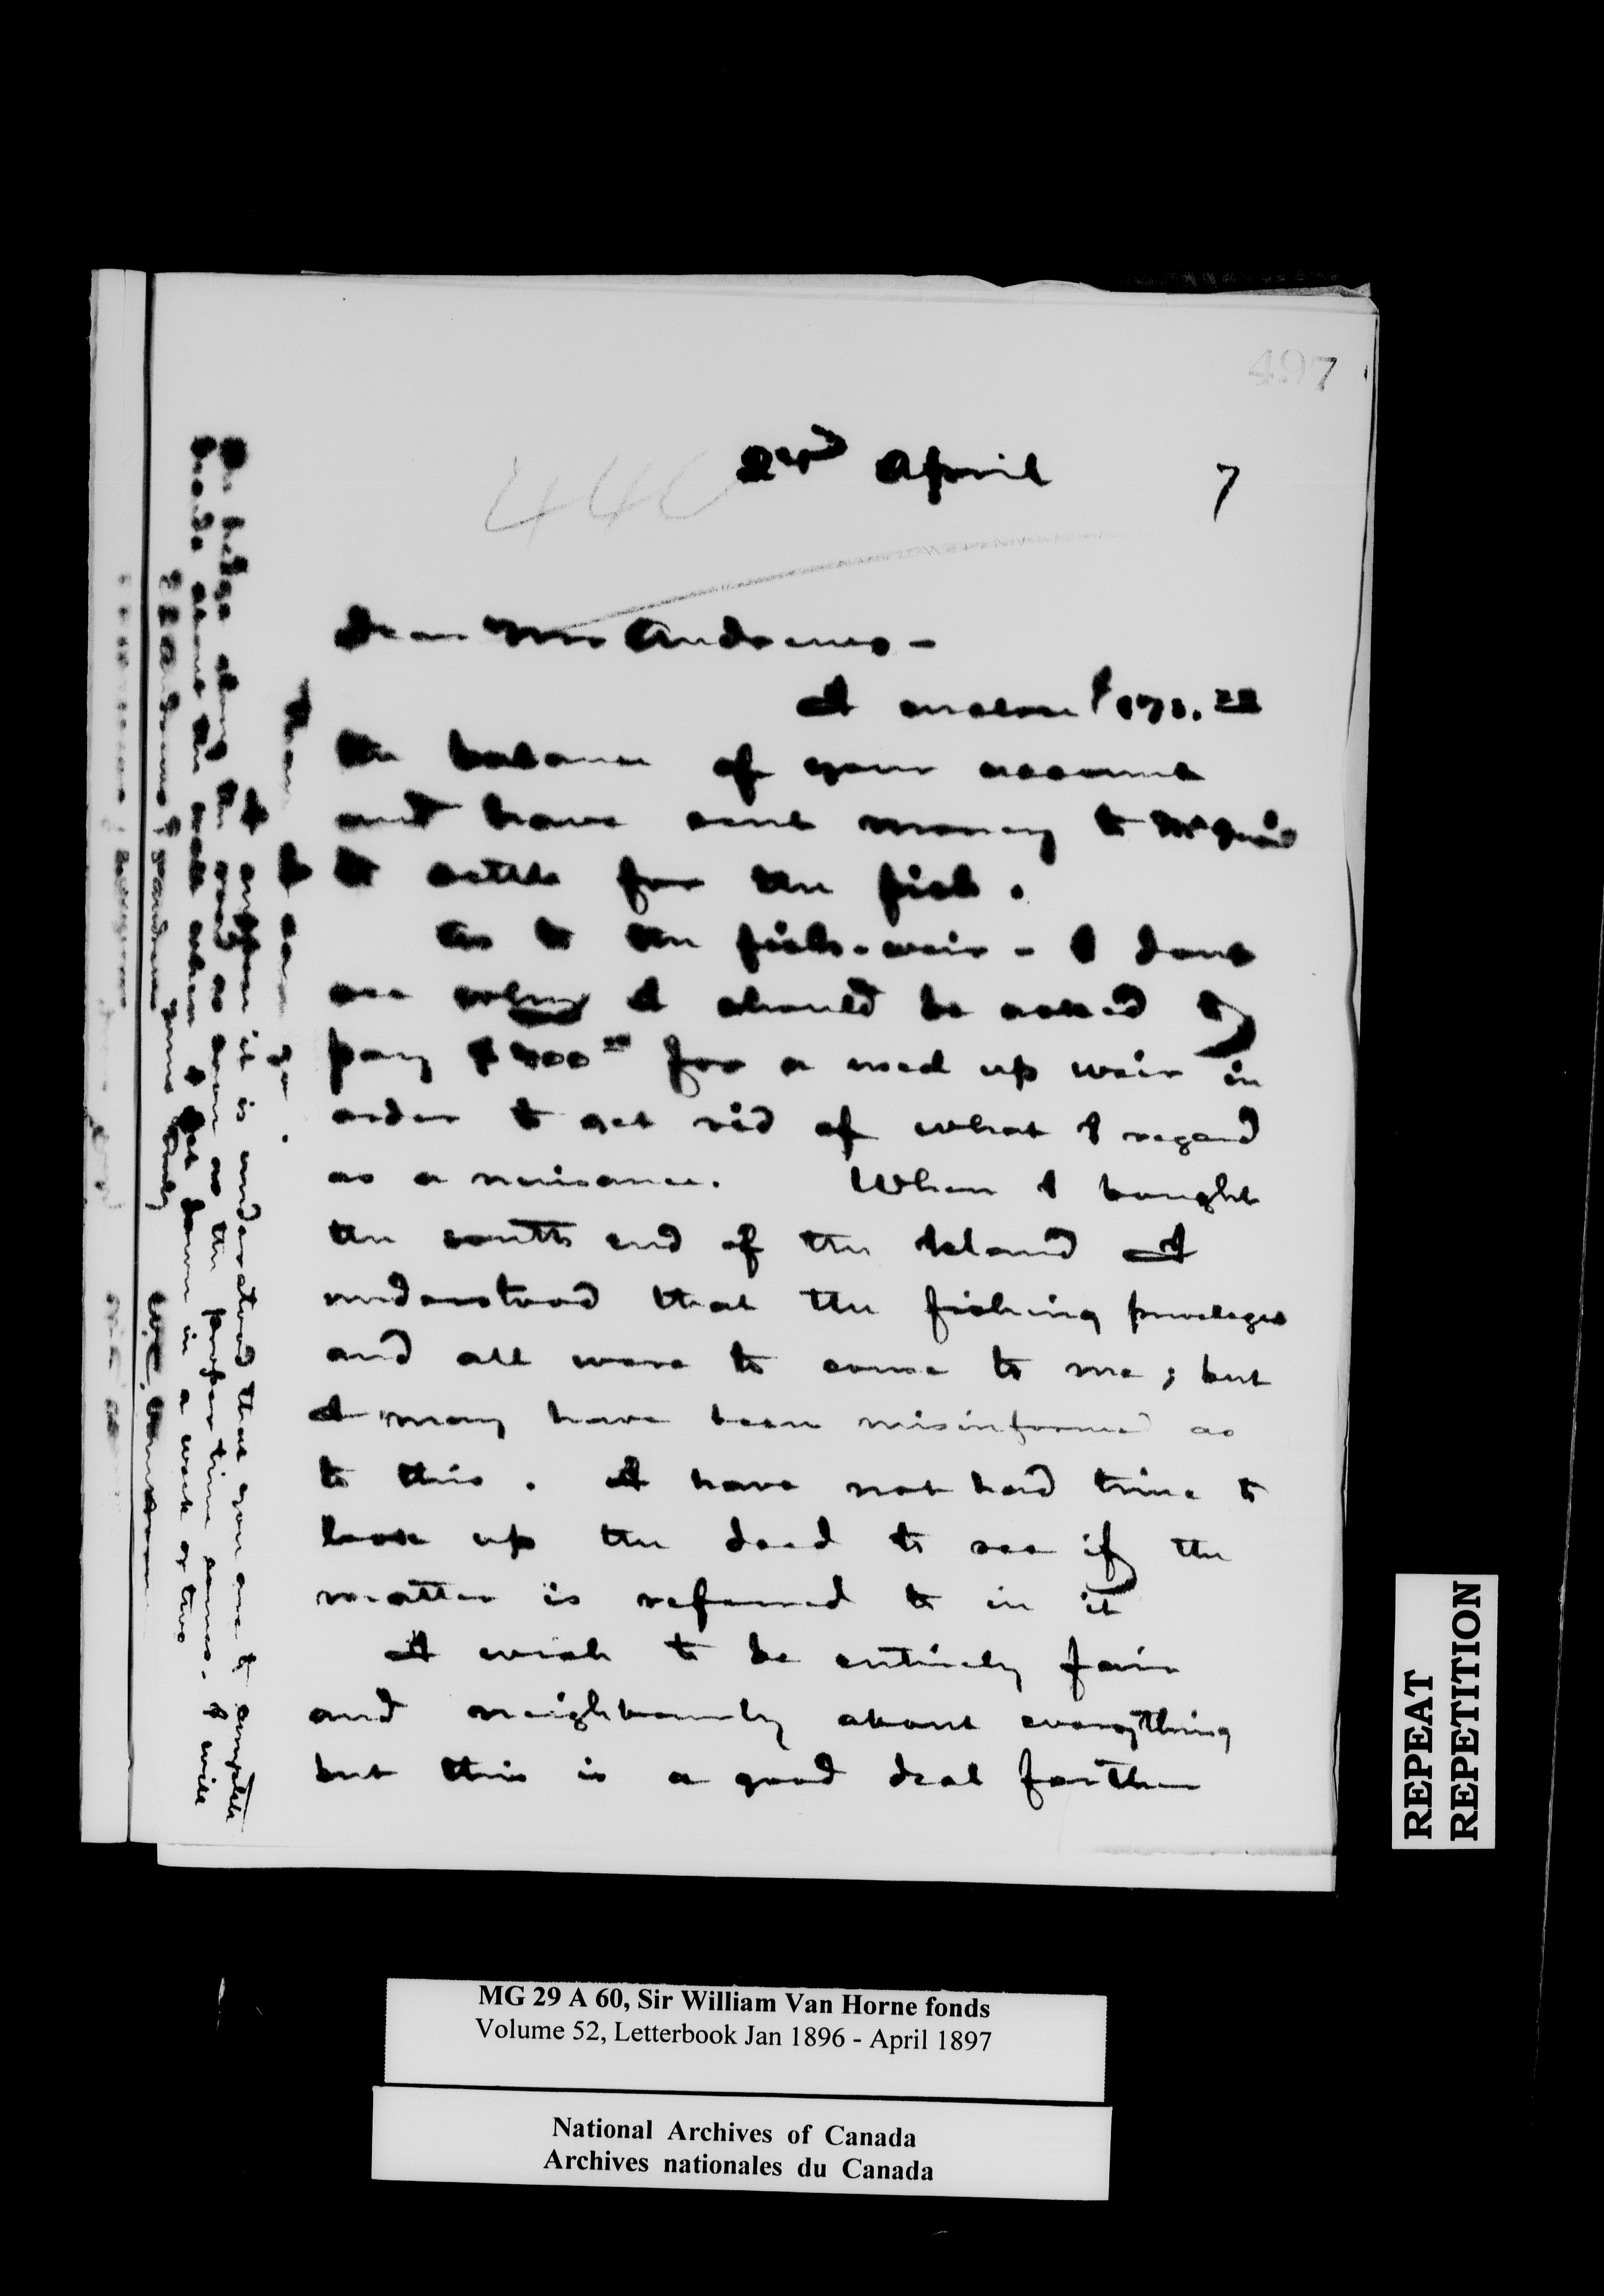 497
440
2nd April 7
Dear Mr Andrews -
I enclose $173.22
the balance of your account
and have sent money to McQuoid
to settle for the fish.
As to the fish-weir - I dont
see why I should be asked to
pay $400 00 for a used up weir in
order to get rid of what I regard
as a nuisance. When I bought
the south end of the Island I
understood that the fishing privileges
and all were to come to me; but
I may have been misinformed as
to this. I have not had time to
look up the deed to see if the
matter is referred to in it
I wish to be entirely fair
and neighbourly about everything
but this is a good deal farther
than I can go.
I suppose it is understood that you are to complete
the hedge along the road as soon as the proper time comes. I will
decide about the rest when I get down in a week or two
Yours Truly
W.C. Van Horne
REPEAT
REPETITION
MG 29 A 60, Sir William Van Horne fonds
Volume 52, Letterbook Jan 1896 - April 1897
National Archives of Canada
Archives nationales du Canada